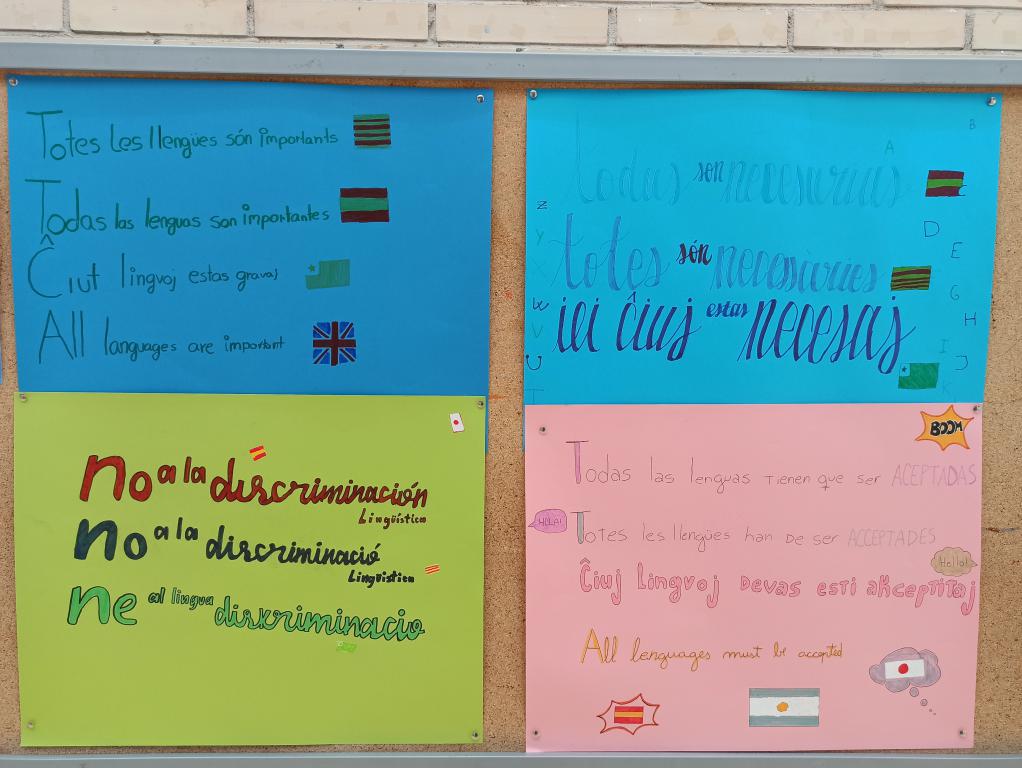 Totes les llengües són importants
Todas las lenguas son importantes
Ĉiut lingvoj estas gravaj
All languages are important
todas son necesarias
totes són necessàries
iei ĉiuj estas necesaj
A
B
C
D
E
G
H
I
J
K
Z
Y
X
W
V
U
T
no a la discriminación
Lingüística
no a la discriminació
Lingüística
ne al lingua diskriminacio
BOOM
Todas las lenguas tienen que ser ACEPTADAS
HOLA!
Totes les llengües han de ser ACCEPTADES
Hello!
Ĉiuj Lingvoj Devas esti akceptitaj
All lenguages must be accepted